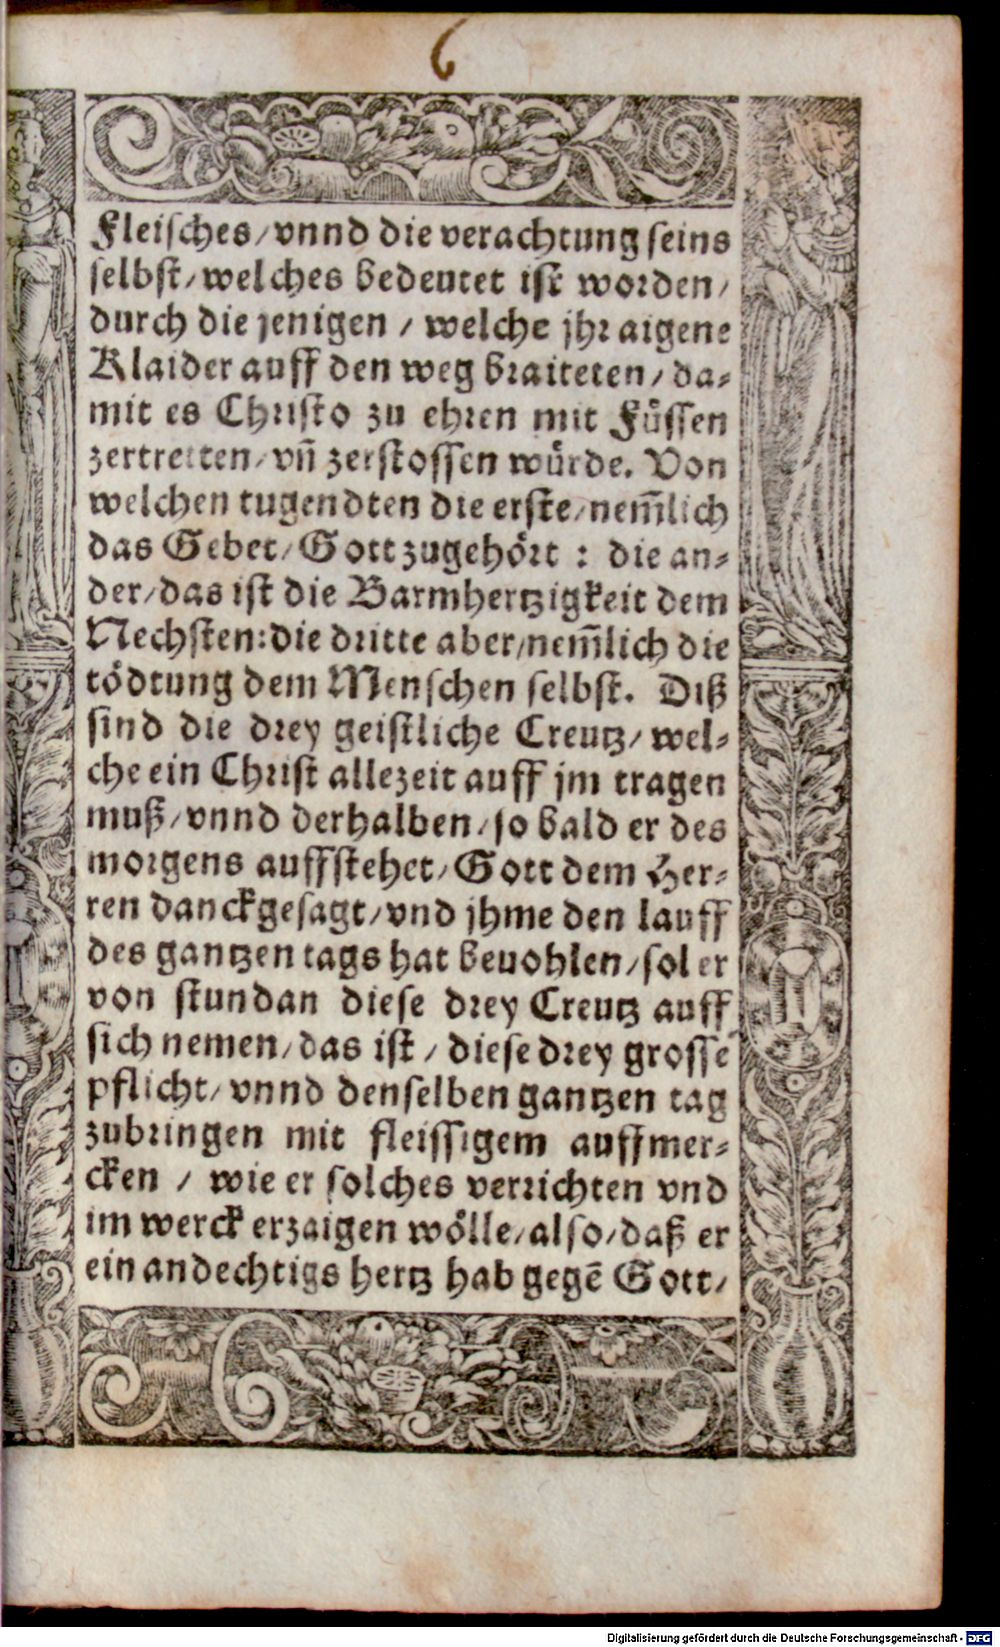 6
Fleisches/vnnd die verachtung seins
selbst/welches bedeutet ist worden/
durch die jenigen / welche jhr aigene
Klaider auff den weg braiteten/da-
mit es Christo zu ehren mit Füssen
zertretten/vn̄ zerstossen würde. Von
welchen tugendten die erste/nem̄lich
das Gebet/Gott zugehört : die an-
der/das ist die Barmhertzigkeit dem
Nechsten:die dritte aber/nem̄lich die
tödtung dem Menschen selbst. Diß
sind die drey geistliche Creutz/wel-
che ein Christ allezeit auff jm tragen
muß/vnnd derhalben/so bald er des
morgens auffstehet/Gott dem Her-
ren danckgesagt/vnd jhme den lauff
des gantzen tags hat beuohlen/sol er
von stundan diese drey Creutz auff
sich nemen/das ist / diese drey grosse
pflicht/vnnd denselben gantzen tag
zubringen mit fleissigem auffmer-
cken / wie er solches verrichten vnd
im werck erzaigen wölle/also/daß er
ein andechtigs hertz hab gegē Gott/
Digitalisierung gefördert durch die Deutsche Forschungsgemeinschaft - DFG